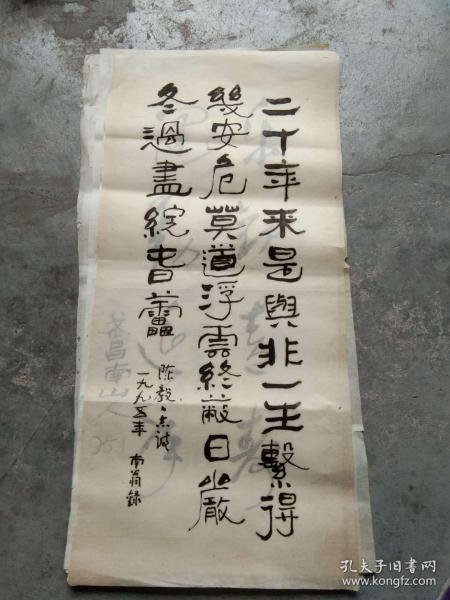 二十年来是與非一生繫得
幾安危莫道浮雲終蔽日嚴
冬過盡綻春蕾
陈毅
一九九五年 南翁錄
昌南山人
孔夫子旧书网
www.kongfz.com